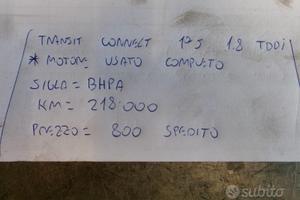 TRANSIT CONNECT 175 1.8 TDDi
* MOTORE USATO COMPLETO
SIGLA = BHPA
KM = 218.000
PREZZO = 800 SPEDITO
subito